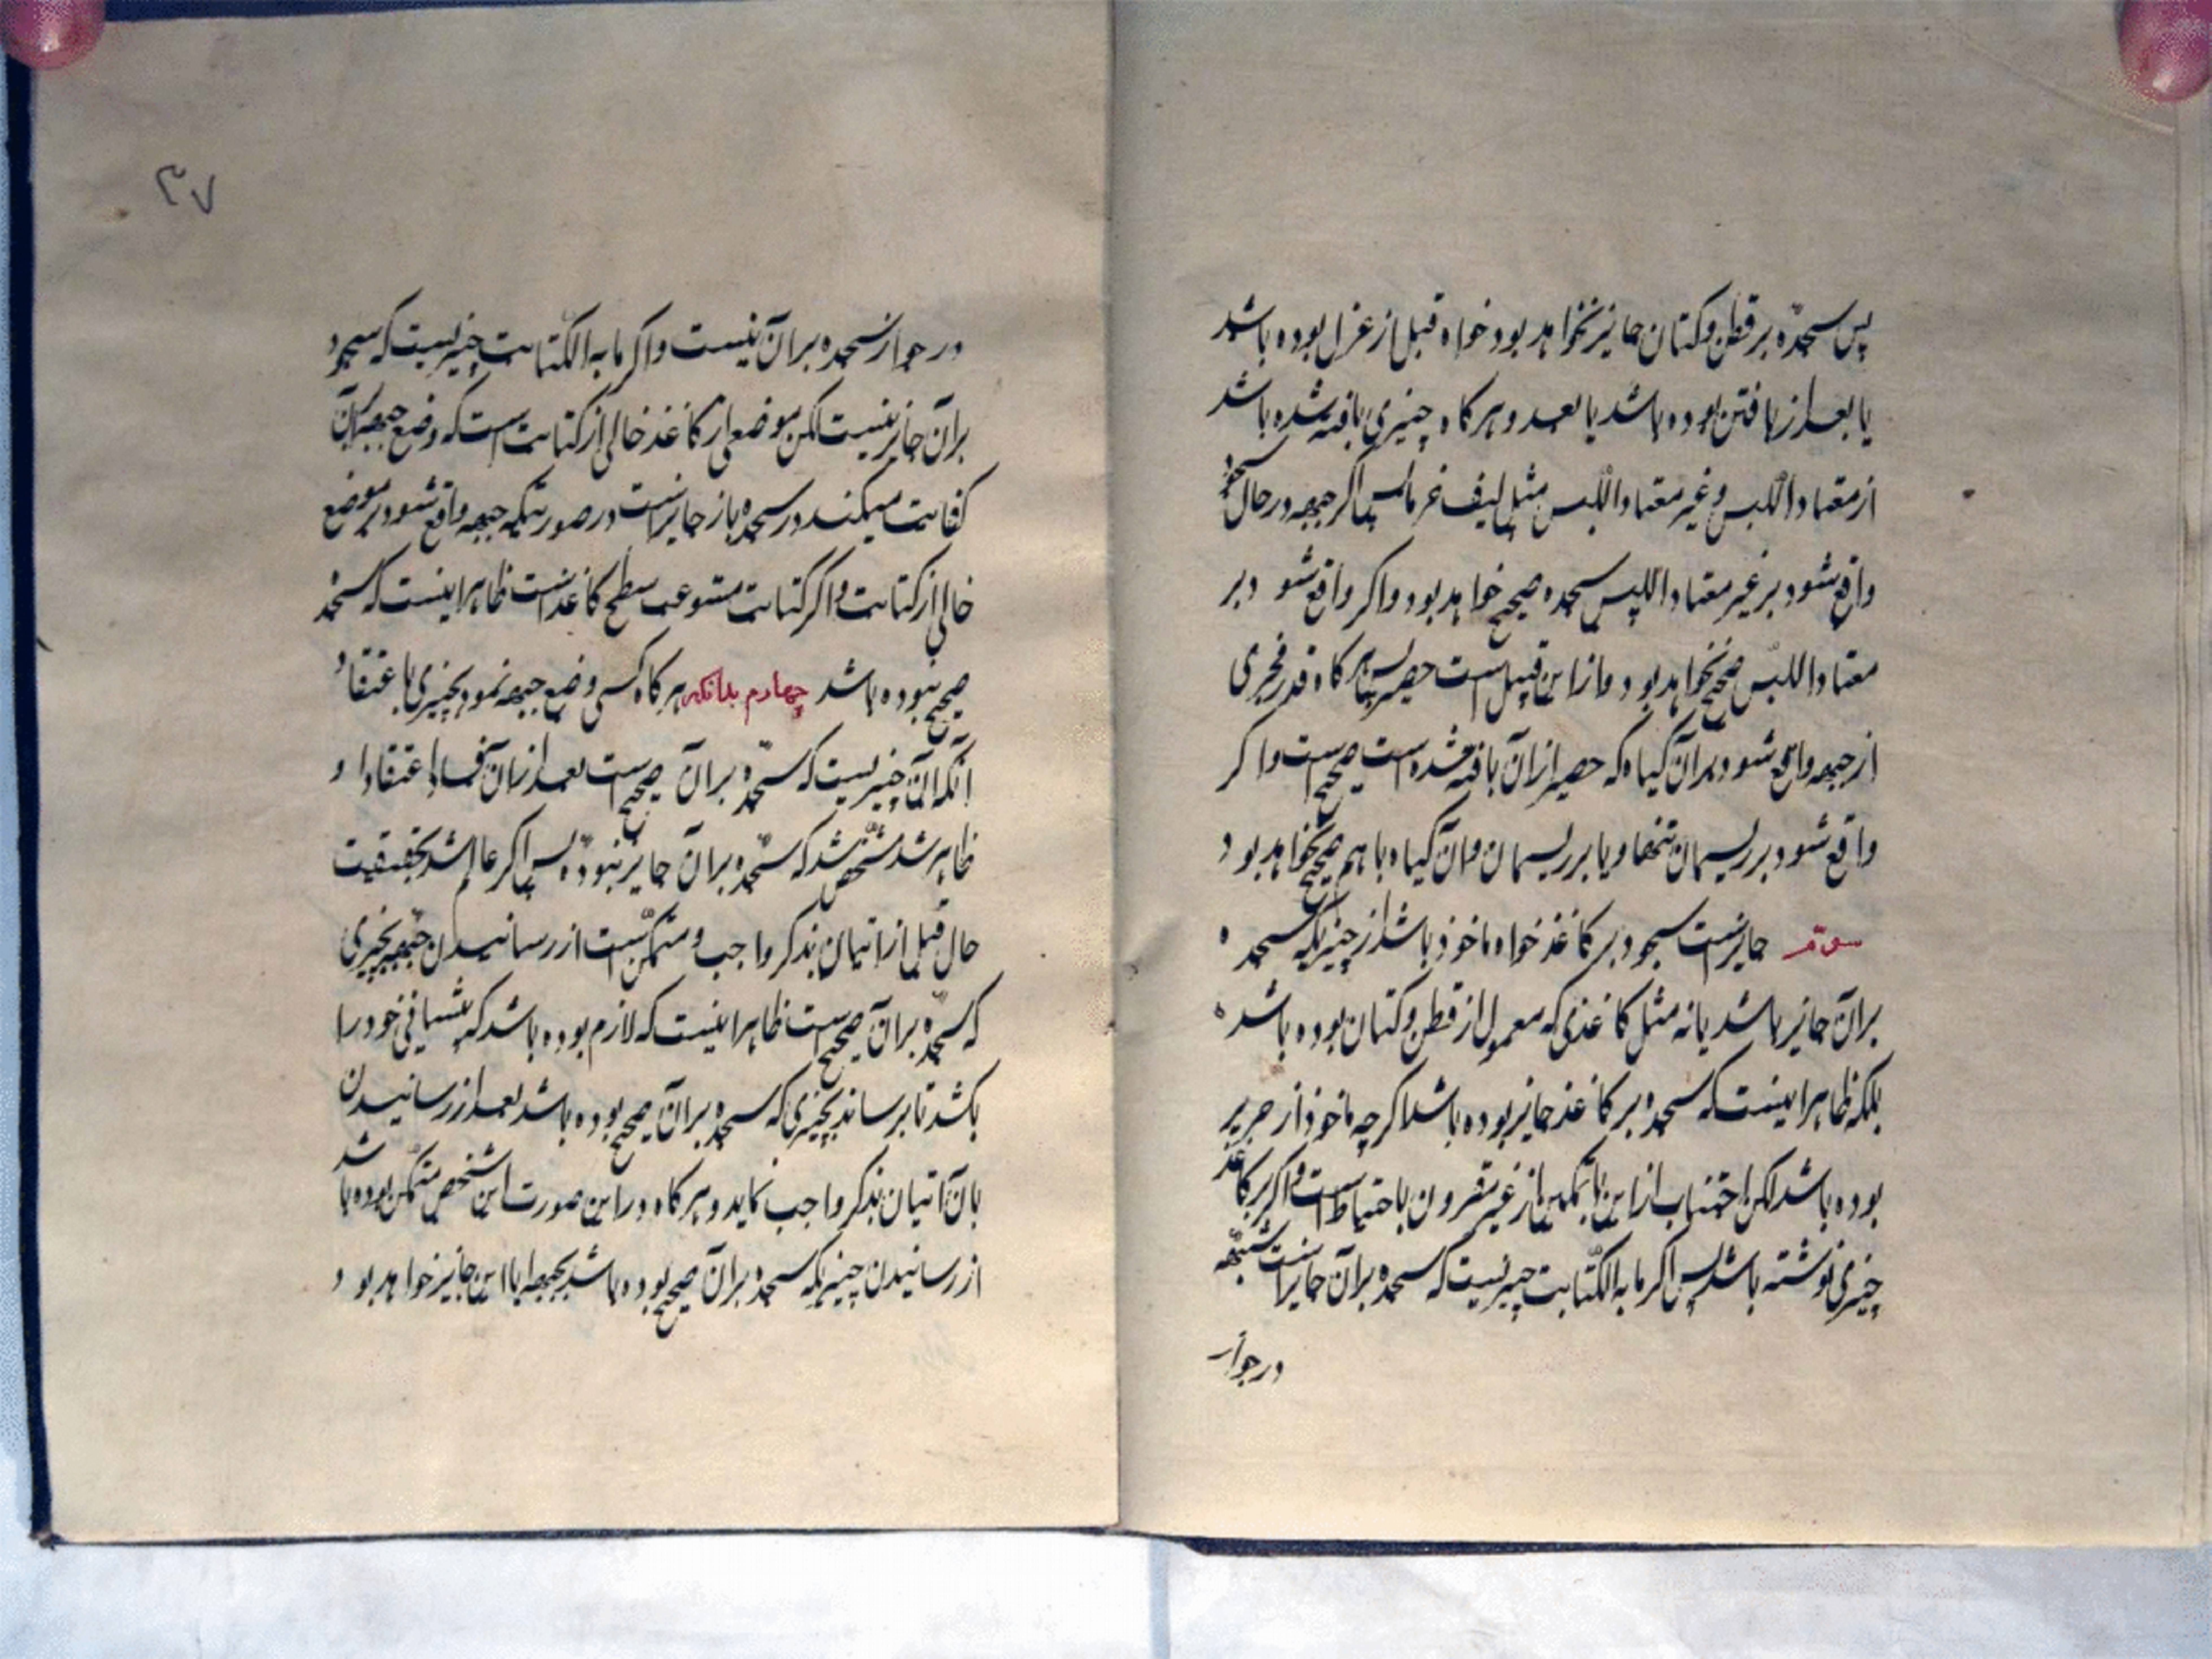 پس سجده بر قطن و کتان جایز نخواهد بود خواه قبل از غزل بوده باشد
یا بعد از بافتن بوده باشد یا بعد و هر کاه چیزی بافته شده باشد
از معتاد اللبس و غیر معتاد اللبس مثل لیف خرما پس اکر جبهه در حال سجود
واقع شود بر غیر معتاد اللبس سجده صحیح خواهد بود و اکر واقع شود بر
معتاد اللبس صحیح نخواهد بود و از این قبیل است حصیر پس هر کاه قدر مجزی
از جبهه واقع شود بر آن کیاه که حصیر از آن بافته شده است صحیح است و اکر
واقع شود بر ریسمان تنها و یا بر ریسمان و آن کیاه با هم صحیح نخواهد بود
سوم جایز است سجود بر کاغذ خواه ماخوذ باشد از چیزیکه سجده
بر آن جایز باشد یا نه مثل کاغذی که معمول از قطن و کتان بوده باشد
بلکه ظاهر اینست که سجده بر کاغذ جایز بوده باشد اکر چه ماخوذ از حریر
بوده باشد لکن اجتناب از این با تمکین از غیر مقرون باحتیاط است و اکر بر کاغذ
چیزی نوشته باشد پس اکر ما به الکتابت چیزیست که سجده بر آن جایز است شبهه
در جواز
۳۷
در جواز سجده بر آن نیست و اکر ما به الکتابت چیزیست که سجود
بر آن جایز نیست لکن موضعی از کاغذ خالی از کتابت است که وضع جبهه بر آن
کفایت میکند در سجده باز جایز است در صورتیکه جبهه واقع شود بر موضع
خالی از کتابت و اکر کتابت مستوعب سطح کاغذ است ظاهر اینست که سجده
صحیح نبوده باشد چهارم بدانکه هر کاه کسی وضع جبهه نمود بچیزی باعتقاد
آنکه آن چیزیست که سجده بر آن صحیح است بعد از آن فساد اعتقاد او
ظاهر شد مشخص شد که سجده بر آن جایز نبوده پس اکر عالم شد بحقیقت
حال قبل از اتیان بذکر واجب و متمکن است از رسانیدن جبهه بچیزی
که سجده بر آن صحیح است ظاهر اینست که لازم بوده باشد که پیشانی خود را
بکشد تا برساند بچیزی که سجده بر آن صحیح بوده باشد بعد از رسانیدن
بآن اتیان بذکر واجب نماید و هر کاه در این صورت این شخص متمکن بوده باشد
از رسانیدن چیزیکه سجده بر آن صحیح بوده باشد بجبهه ایا این جایز خواهد بود